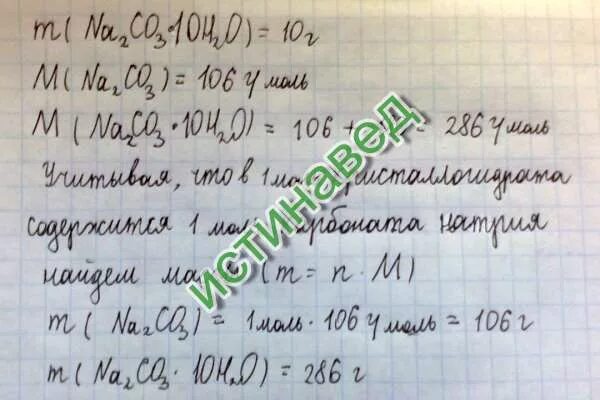 m(Na₂CO₃·10H₂O) = 10г
M(Na₂CO₃) = 106 г/моль
M(Na₂CO₃·10H₂O) = 106 + = 286 г/моль
Учитывая, что в 1 кристаллогидрата
содержится 1 моль карбоната натрия
найдем (m = n · M)
m(Na₂CO₃) = 1моль · 106 г/моль = 106 г
m(Na₂CO₃ · 10H₂O) = 286 г
ИСТИНАВЕД